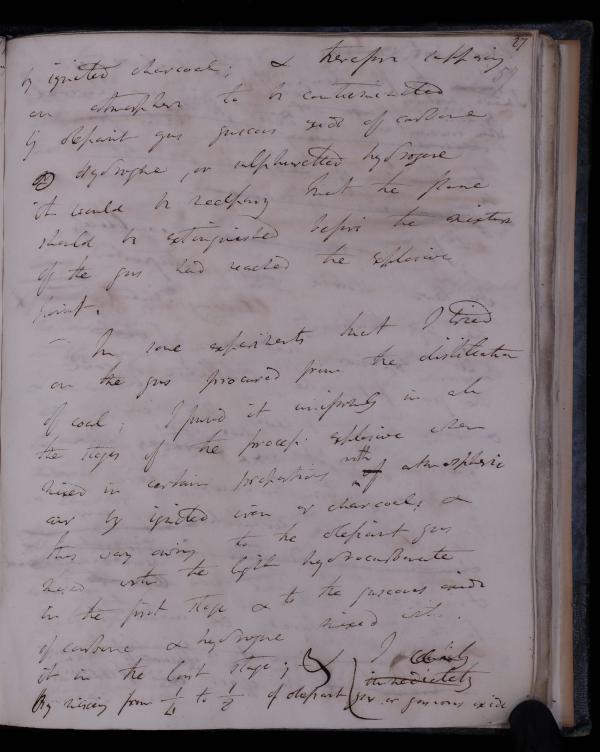 27
by ignited charcoal; & therefore supposing
an atmosphere to be contaminated
by olefiant gas gaseous oxide of carbone
or Hydrogene, or sulphuretted hydrogene
it would be necessary that the flame
should be extinguished before the mixture
of the gas had reached the explosive
point.
In some experiments that I tried
on the gas procured from the distillation
of coal; I found it uniformly in all
the stages of the process explosive when
mixed in certain proportions with of atmospheric
air by ignited iron or charcoal; &
this was owing to the olefiant gas
mixed with the light hydrocarbonate
in the first stage & to the gaseous oxide
of carbone & hydrogene mixed with
it in the last stage; & I
immediately
By mixing from 1/4 to 1/2 of olefiant gas or gaseous oxide